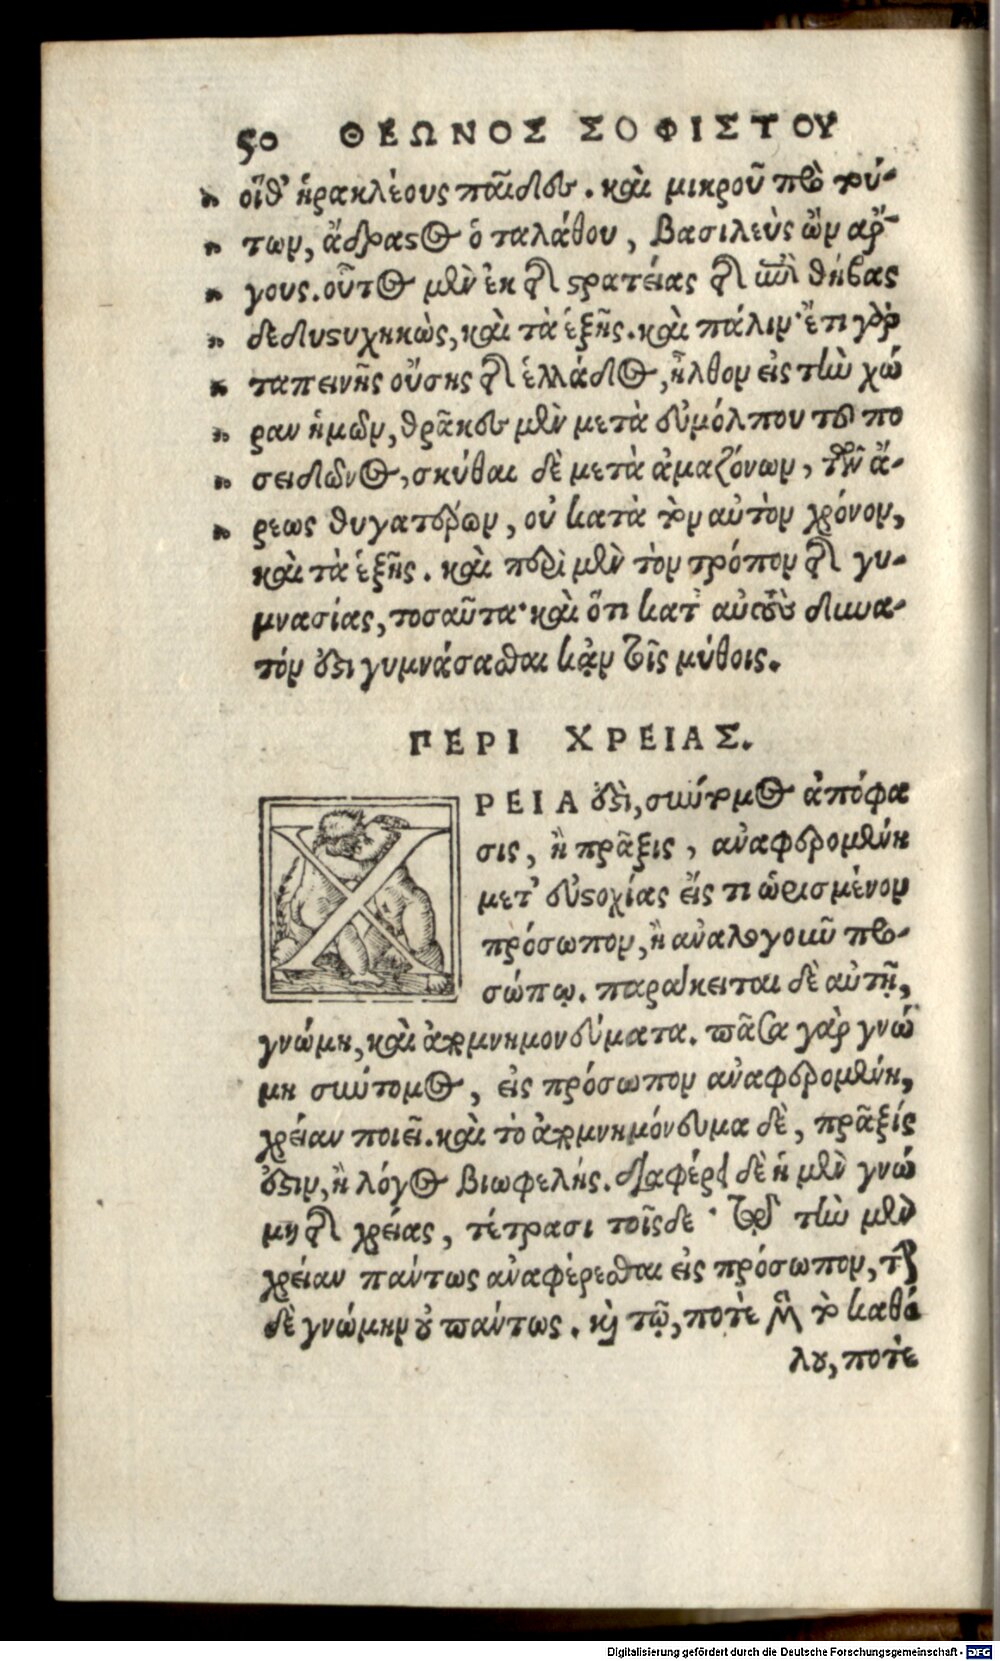 50 ΘΕΩΝΟΣ ΣΟΦΙΣΤΟΥ
οἵ θ' ἡρακλέους παῖδες. καὶ μικροῦ πρὸ τού-
των, ἄδραστος ὁ ταλάθου, βασιλεὺς ὢν ἄρ-
γους. οὗτος μὲν ἐκ τῆς στρατείας τῆς ἐπὶ θήβας
δεδυστυχηκὼς, καὶ τὰ ἑξῆς. καὶ πάλιν· ἔτι γὰρ
ταπεινῆς οὔσης τῆς ἑλλάδος, ἦλθον εἰς τὴν χώ
ραν ἡμῶν, θρᾶκες μὲν μετὰ εὐμόλπου τοῦ πο
σειδῶνος, σκύθαι δὲ μετὰ ἀμαζόνων, τῶν ἄ-
ρεως θυγατέρων, οὐ κατὰ τὸν αὐτὸν χρόνον,
καὶ τὰ ἑξῆς. καὶ περὶ μὲν τὸν τρόπον τῆς γυ-
μνασίας, τοσαῦτα· καὶ ὅτι κατ' αὐτοὺς δυνα-
τόν ἐστι γυμνάσασθαι κἀν τοῖς μύθοις.
ΠΕΡΙ ΧΡΕΙΑΣ.
ΧΡΕΙΑ ἐστὶ, σύντομος ἀπόφα
σις, ἢ πρᾶξις, ἀναφερομένη
μετ' εὐστοχίας εἴς τι ὡρισμένον
πρόσωπον, ἢ ἀναλογοῦν προ-
σώπῳ. παράκειται δὲ αὐτῇ,
γνώμη, καὶ ἀπομνημονεύματα. πᾶσα γὰρ γνώ
μη σύντομος, εἰς πρόσωπον ἀναφερομένη,
χρείαν ποιεῖ. καὶ τὸ ἀπομνημόνευμα δὲ, πρᾶξίς
ἐστιν, ἢ λόγος βιωφελής. διαφέρει δὲ ἡ μὲν γνώ
μη τῆς χρείας, τέτρασι τοῖσδε· τῷδε τὴν μὲν
χρείαν πάντως ἀναφέρεσθαι εἰς πρόσωπον, τὴν
δὲ γνώμην οὐ πάντως. καὶ τῷ, ποτὲ μὲν τὸ καθό
λου, ποτὲ
Digitalisierung gefördert durch die Deutsche Forschungsgemeinschaft - DFG